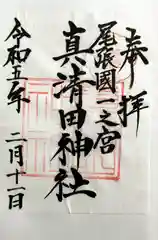 奉拝
尾張國一之宮
真清田神社
令和五年 二月十一日